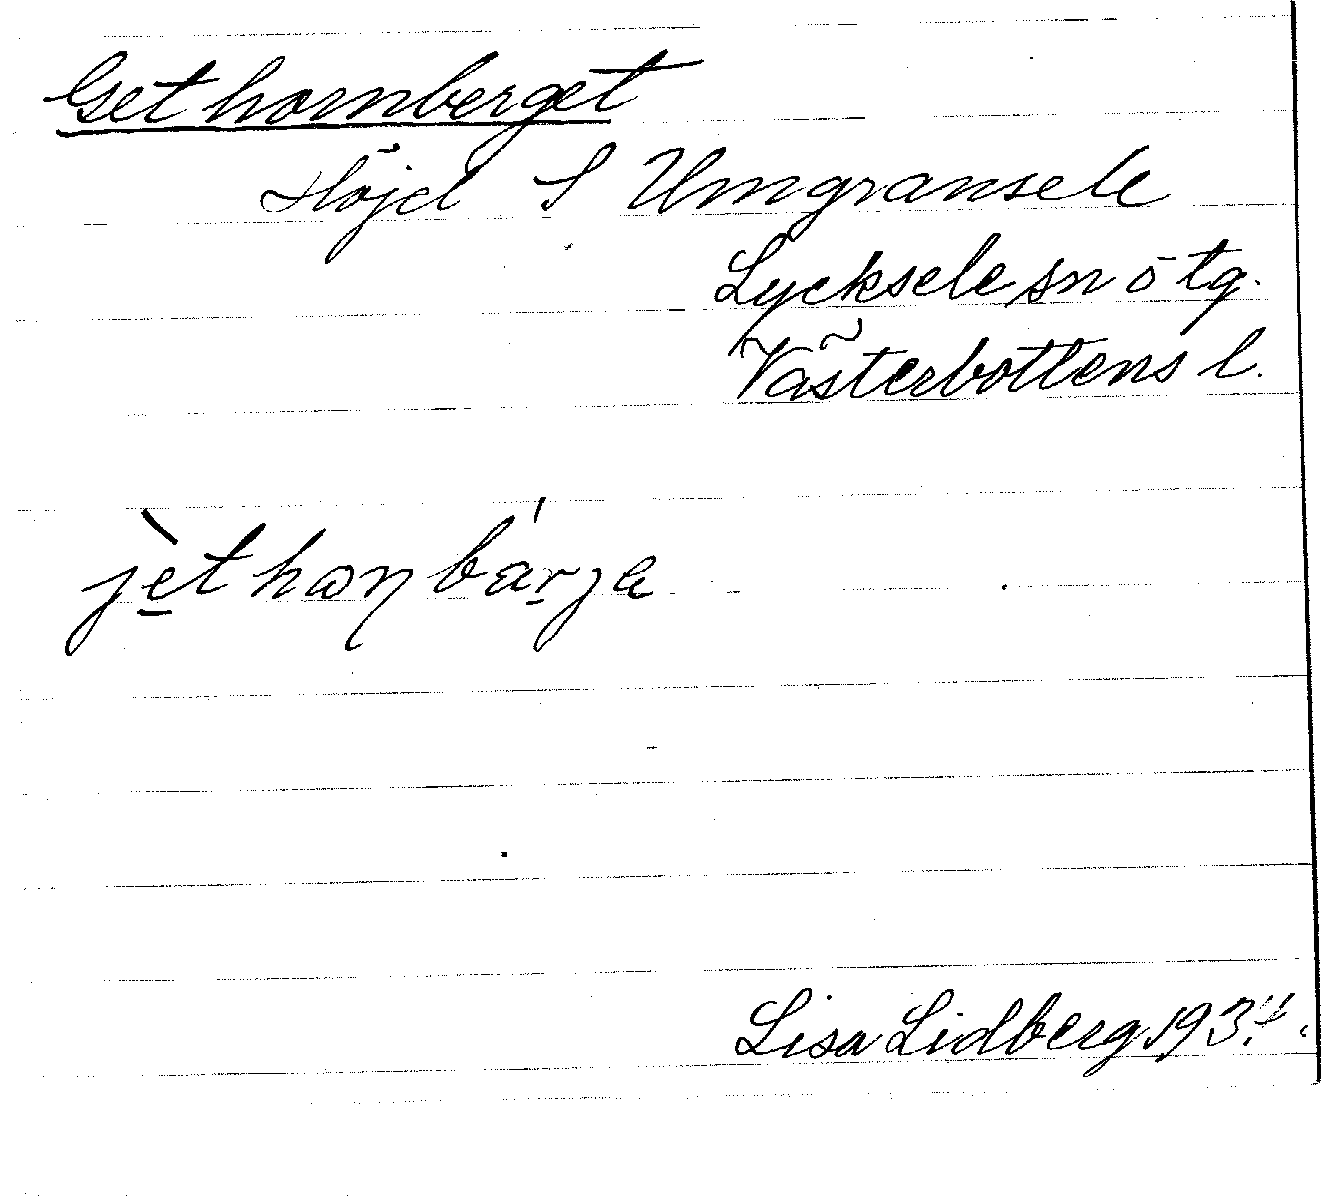 Gethornberget
Höjd S Umgransele
Lycksele sn o tg.
Västerbottens l.
jèt̲haɳbár̲ja
Lisa Lidberg 1934.